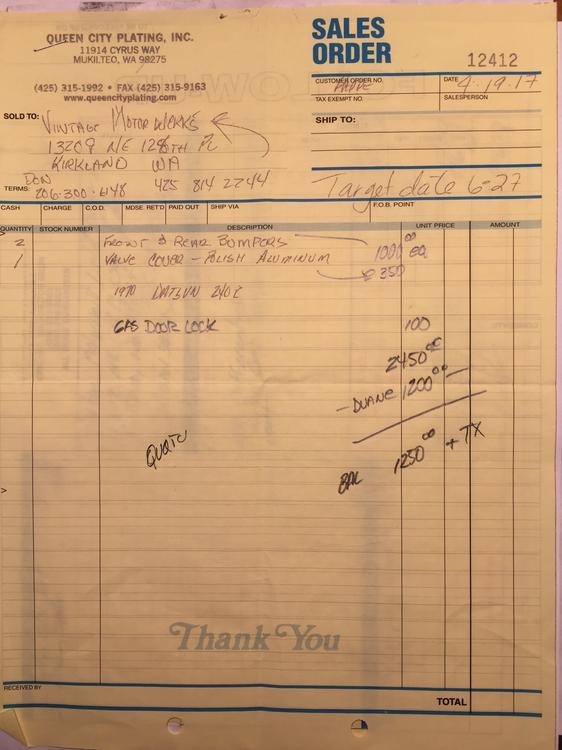 QUEEN CITY PLATING, INC.
11914 CYRUS WAY
MUKILTEO, WA 98275
(425) 315-1992 • FAX (425) 315-9163
www.queencityplating.com
SALES
ORDER
12412
CUSTOMER ORDER NO.
DATE 4-19-17
TAX EXEMPT NO.
SALESPERSON
SOLD TO: VINTAGE MOTOR WERKS
13209 NE 126TH PL
KIRKLAND WA
SHIP TO:
DON
TERMS: 206-300-6148 425 814 2244
Target date 6-27
CASH CHARGE C.O.D. MDSE. RET'D PAID OUT SHIP VIA F.O.B. POINT
QUANTITY STOCK NUMBER DESCRIPTION UNIT PRICE AMOUNT
2 FRONT & REAR BUMPERS 1000 00 ea
1 VALVE COVER - POLISH ALUMINUM 350
1970 DATSUN 240Z
GAS DOOR LOCK 100
2450 00
- DUANE 1200 00
BAL 1250 00 + TX
Thank You
RECEIVED BY
TOTAL